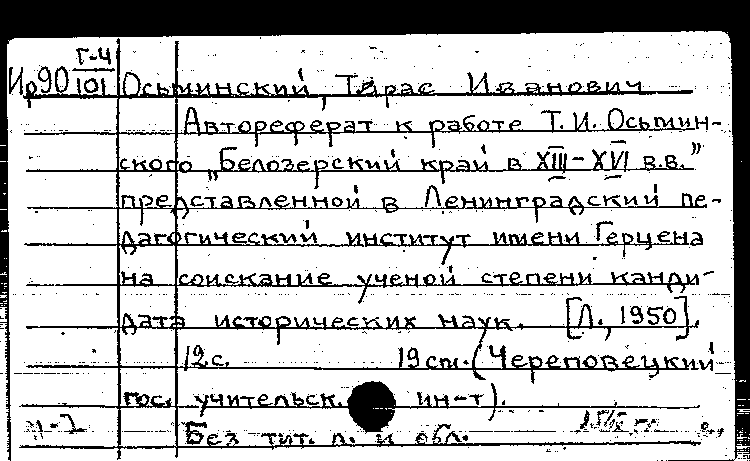 Г-4
Ир90 101 Осьминский, Тарас Иванович
Автореферат к работе Т.И. Осьмин-
ского „Белозерский край в XIII-XVI в.в.”
представленной в Ленинградский пе-
дагогический институт имени Герцена
на соискание ученой степени канди-
дата исторических наук. [Л., 1950].
12с. 19 см. (Череповецкий
гос. учительск. ин-т).
Без тит. л. и обл.